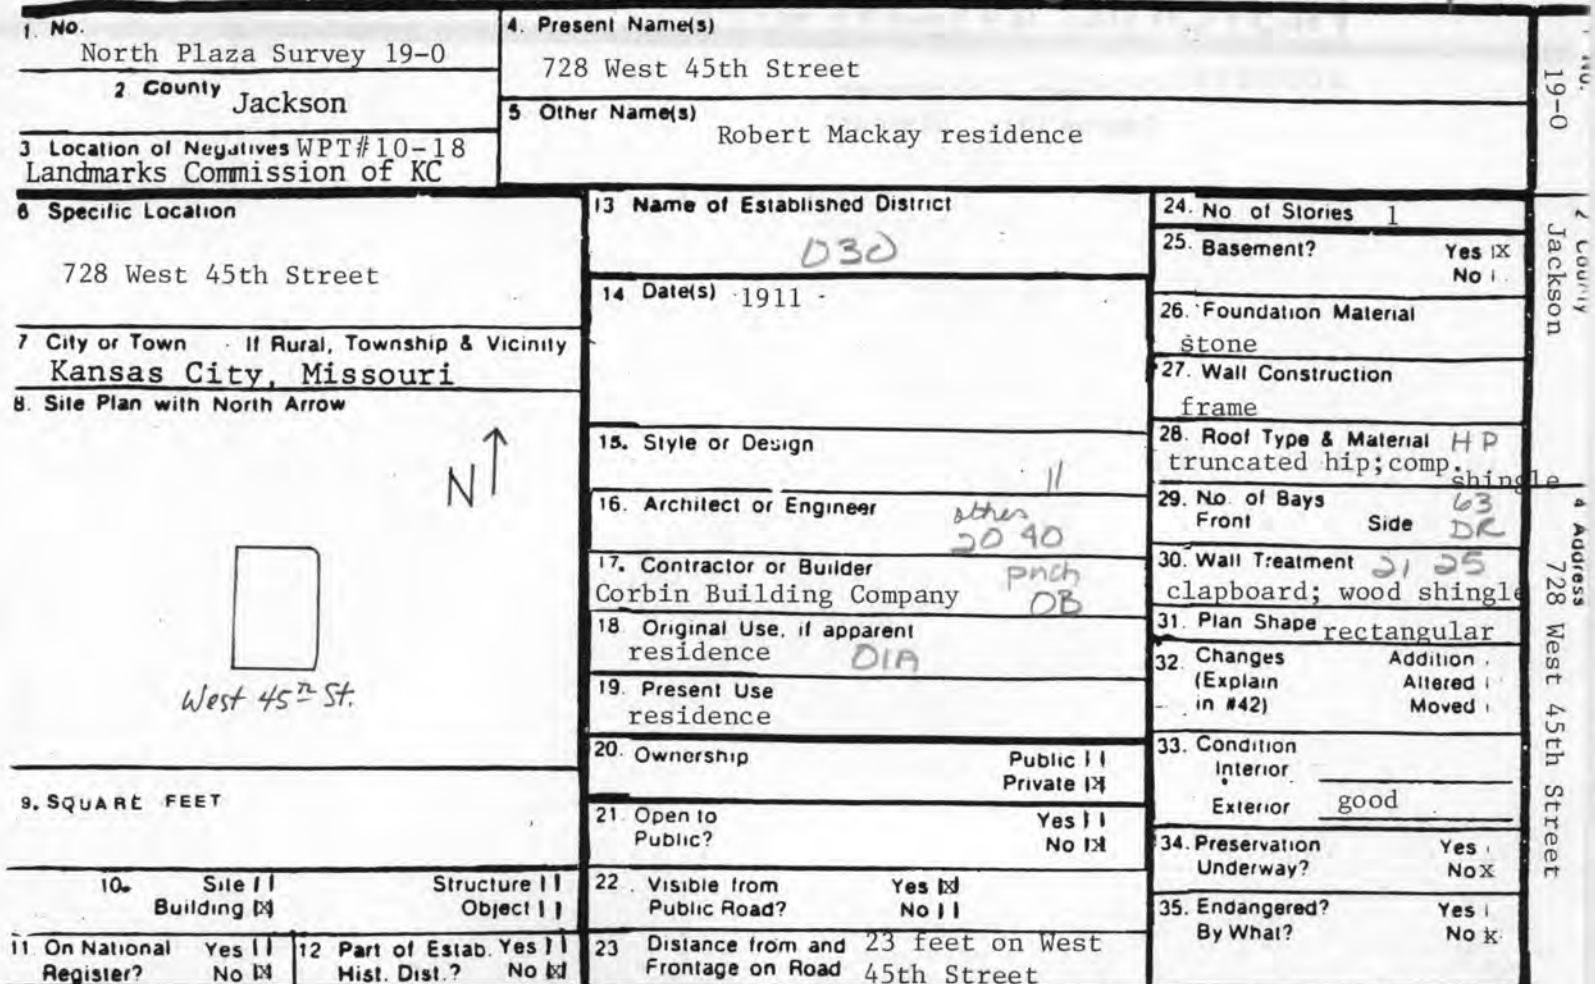 1. No.
North Plaza Survey 19-0
2 County Jackson
3 Location of Negatives WPT#10-18
Landmarks Commission of KC
4. Present Name(s)
728 West 45th Street
5 Other Name(s)
Robert Mackay residence
6 Specific Location
728 West 45th Street
7 City or Town If Rural, Township & Vicinity
Kansas City, Missouri
8. Site Plan with North Arrow
N
West 45th St.
9. SQUARE FEET
10. Site Structure
Building X Object
11 On National Yes
Register? No X
12 Part of Estab. Yes
Hist. Dist.? No X
13 Name of Established District
030
14 Date(s) 1911
15. Style or Design
11
16. Architect or Engineer other
20 40
17. Contractor or Builder pnch
Corbin Building Company OB
18 Original Use, if apparent
residence 01A
19. Present Use
residence
20. Ownership Public
Private X
21. Open to Yes
Public? No X
22. Visible from Yes X
Public Road? No
23 Distance from and 23 feet on West
Frontage on Road 45th Street
24. No of Stories 1
25. Basement? Yes X
No
26. Foundation Material
stone
27. Wall Construction
frame
28. Roof Type & Material HP
truncated hip;comp.
shingle
29. No. of Bays 63
Front Side DR
30. Wall Treatment 21 25
clapboard; wood shingle
31. Plan Shape rectangular
32. Changes Addition
(Explain Altered
in #42) Moved
33. Condition
Interior
Exterior good
34. Preservation Yes
Underway? No X
35. Endangered? Yes
By What? No X
19-0
County
Jackson
4 Address
728 West 45th Street